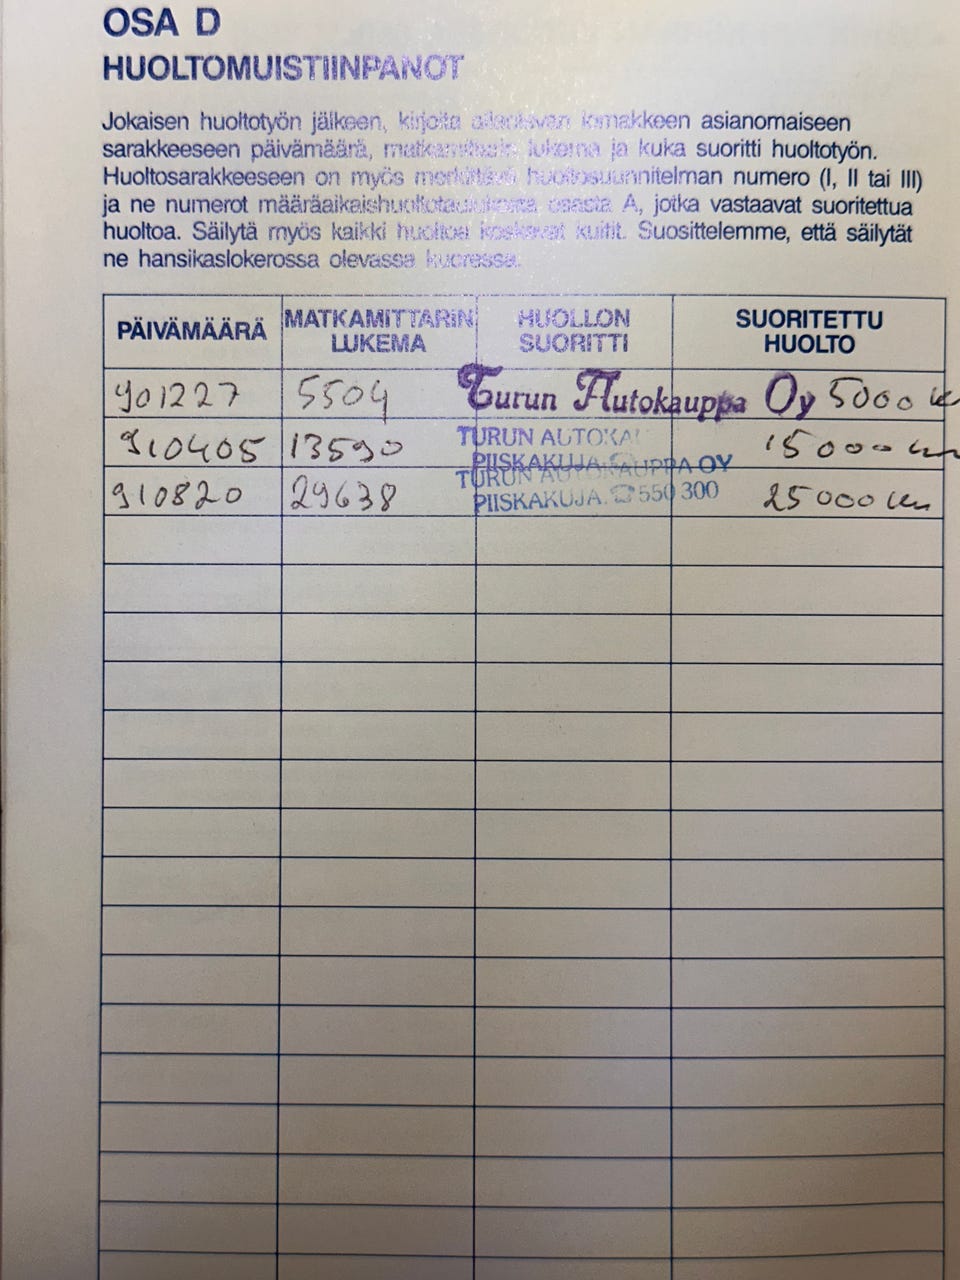 OSA D
HUOLTOMUISTIINPANOT
Jokaisen huoltotyön jälkeen, kirjoita allaolevan lomakkeen asianomaiseen
sarakkeeseen päivämäärä, matkamittarin lukema ja kuka suoritti huoltotyön.
Huoltosarakkeeseen on myös merkittävä huoltosuunnitelman numero (I, II tai III)
ja ne numerot määräaikaishuoltotaulukosta osasta A, jotka vastaavat suoritettua
huoltoa. Säilytä myös kaikki huoltoa koskevat kuitit. Suosittelemme, että säilytät
ne hansikaslokerossa olevassa kuoressa.
PÄIVÄMÄÄRÄ MATKAMITTARIN LUKEMA HUOLLON SUORITTI SUORITETTU HUOLTO
901227 5504 Turun Autokauppa Oy 5000 km
910405 13590 TURUN AUTOKAUPPA OY 15000 km
PIISKAKUJA
910820 29638 TURUN AUTOKAUPPA OY 25000 km
PIISKAKUJA. ☎ 550 300